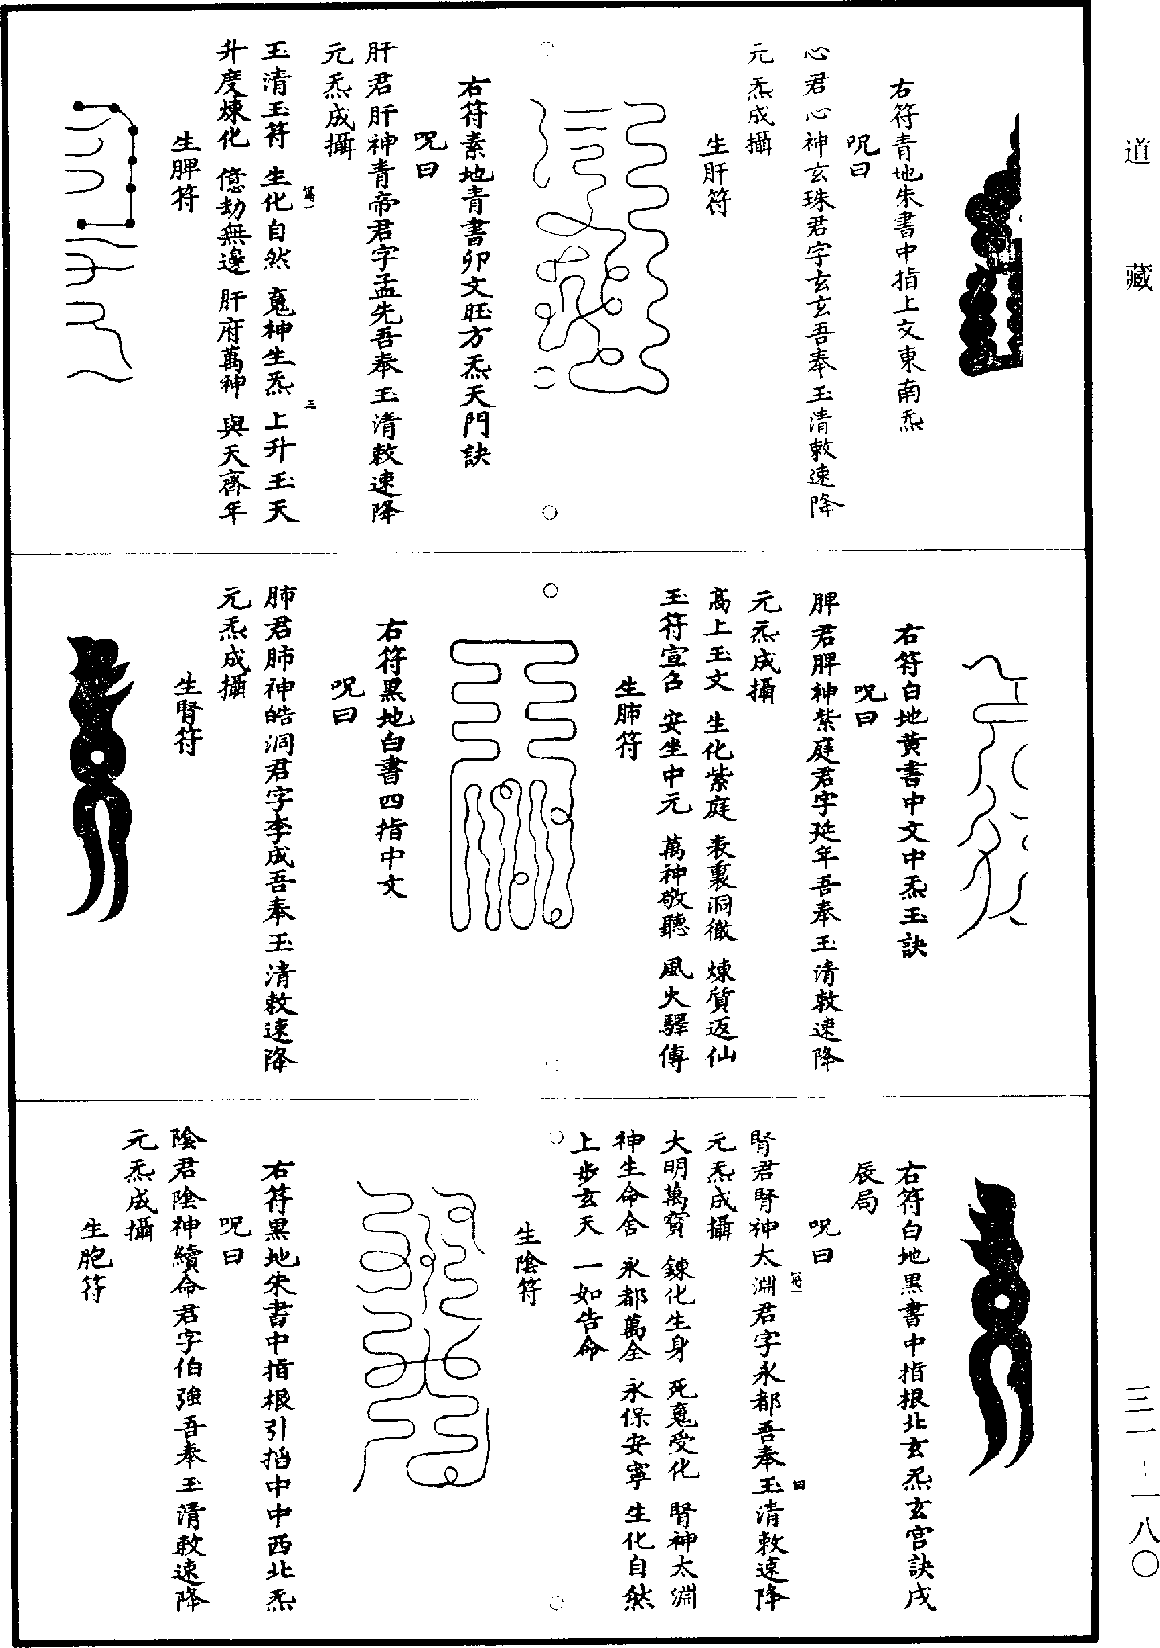 道藏
三一-一八〇
右符青地朱書中指上文東南炁
呪曰
心君心神玄珠君字玄玄吾奉玉清敕速降
元炁成攝
生肝符
右符素地青書卯文旺方炁天門訣
呪曰
肝君肝神青帝君字孟先吾奉玉清敕速降
元炁成攝
玉清玉符 生化自然 䰟神生炁 上升玉天
升度煉化 億劫無邊 肝府萬神 與天齊年
生脾符
右符白地黄書中文中炁玉訣
呪曰
脾君脾神紫庭君字延年吾奉玉清敕速降
元炁成攝
高上玉文 生化紫庭 表裏洞徹 煉質返仙
玉符宣召 安坐中元 萬神敬聽 風火驛傳
生肺符
右符黑地白書四指中文
呪曰
肺君肺神皓洞君字李成吾奉玉清敕速降
元炁成攝
生腎符
右符白地黑書中指根北玄炁玄宫訣戌
辰局
呪曰
腎君腎神太淵君字永都吾奉玉清敕速降
元炁成攝
大明萬寳 鍊化生身 死䰟受化 腎神太淵
神生命舍 永都萬全 永保安寧 生化自然
上步玄天 一如告命
生陰符
右符黑地朱書中指根引掐中中西北炁
呪曰
陰君陰神續命君字伯強吾奉玉清敕速降
元炁成攝
生胞符